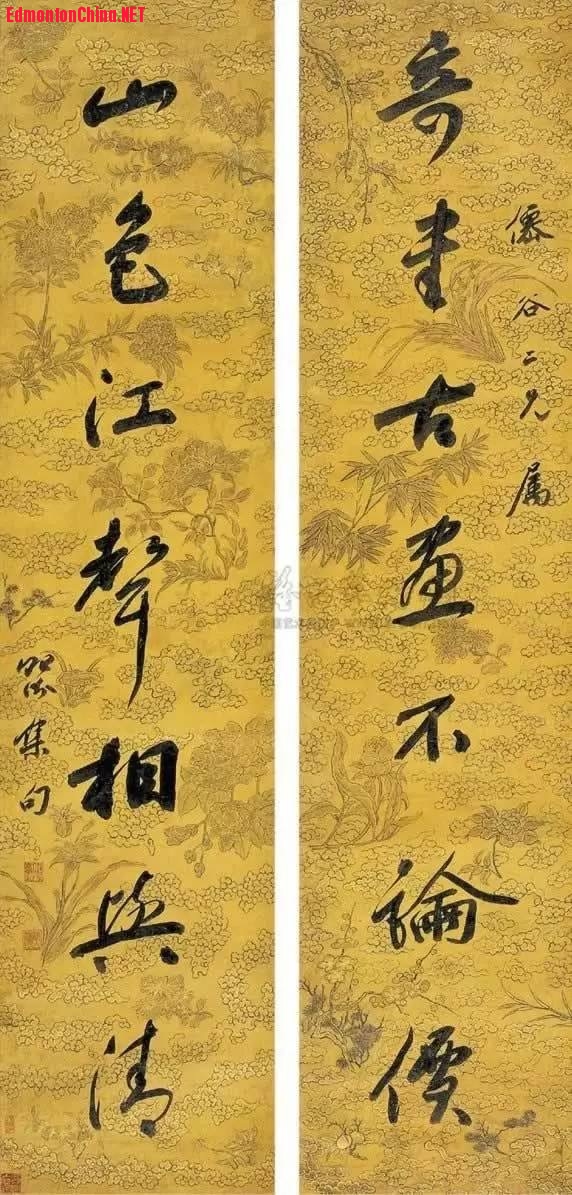 EdmontonChina.NET
奇書古畫不論價
僊谷二兄属
山色江聲相與清
集句